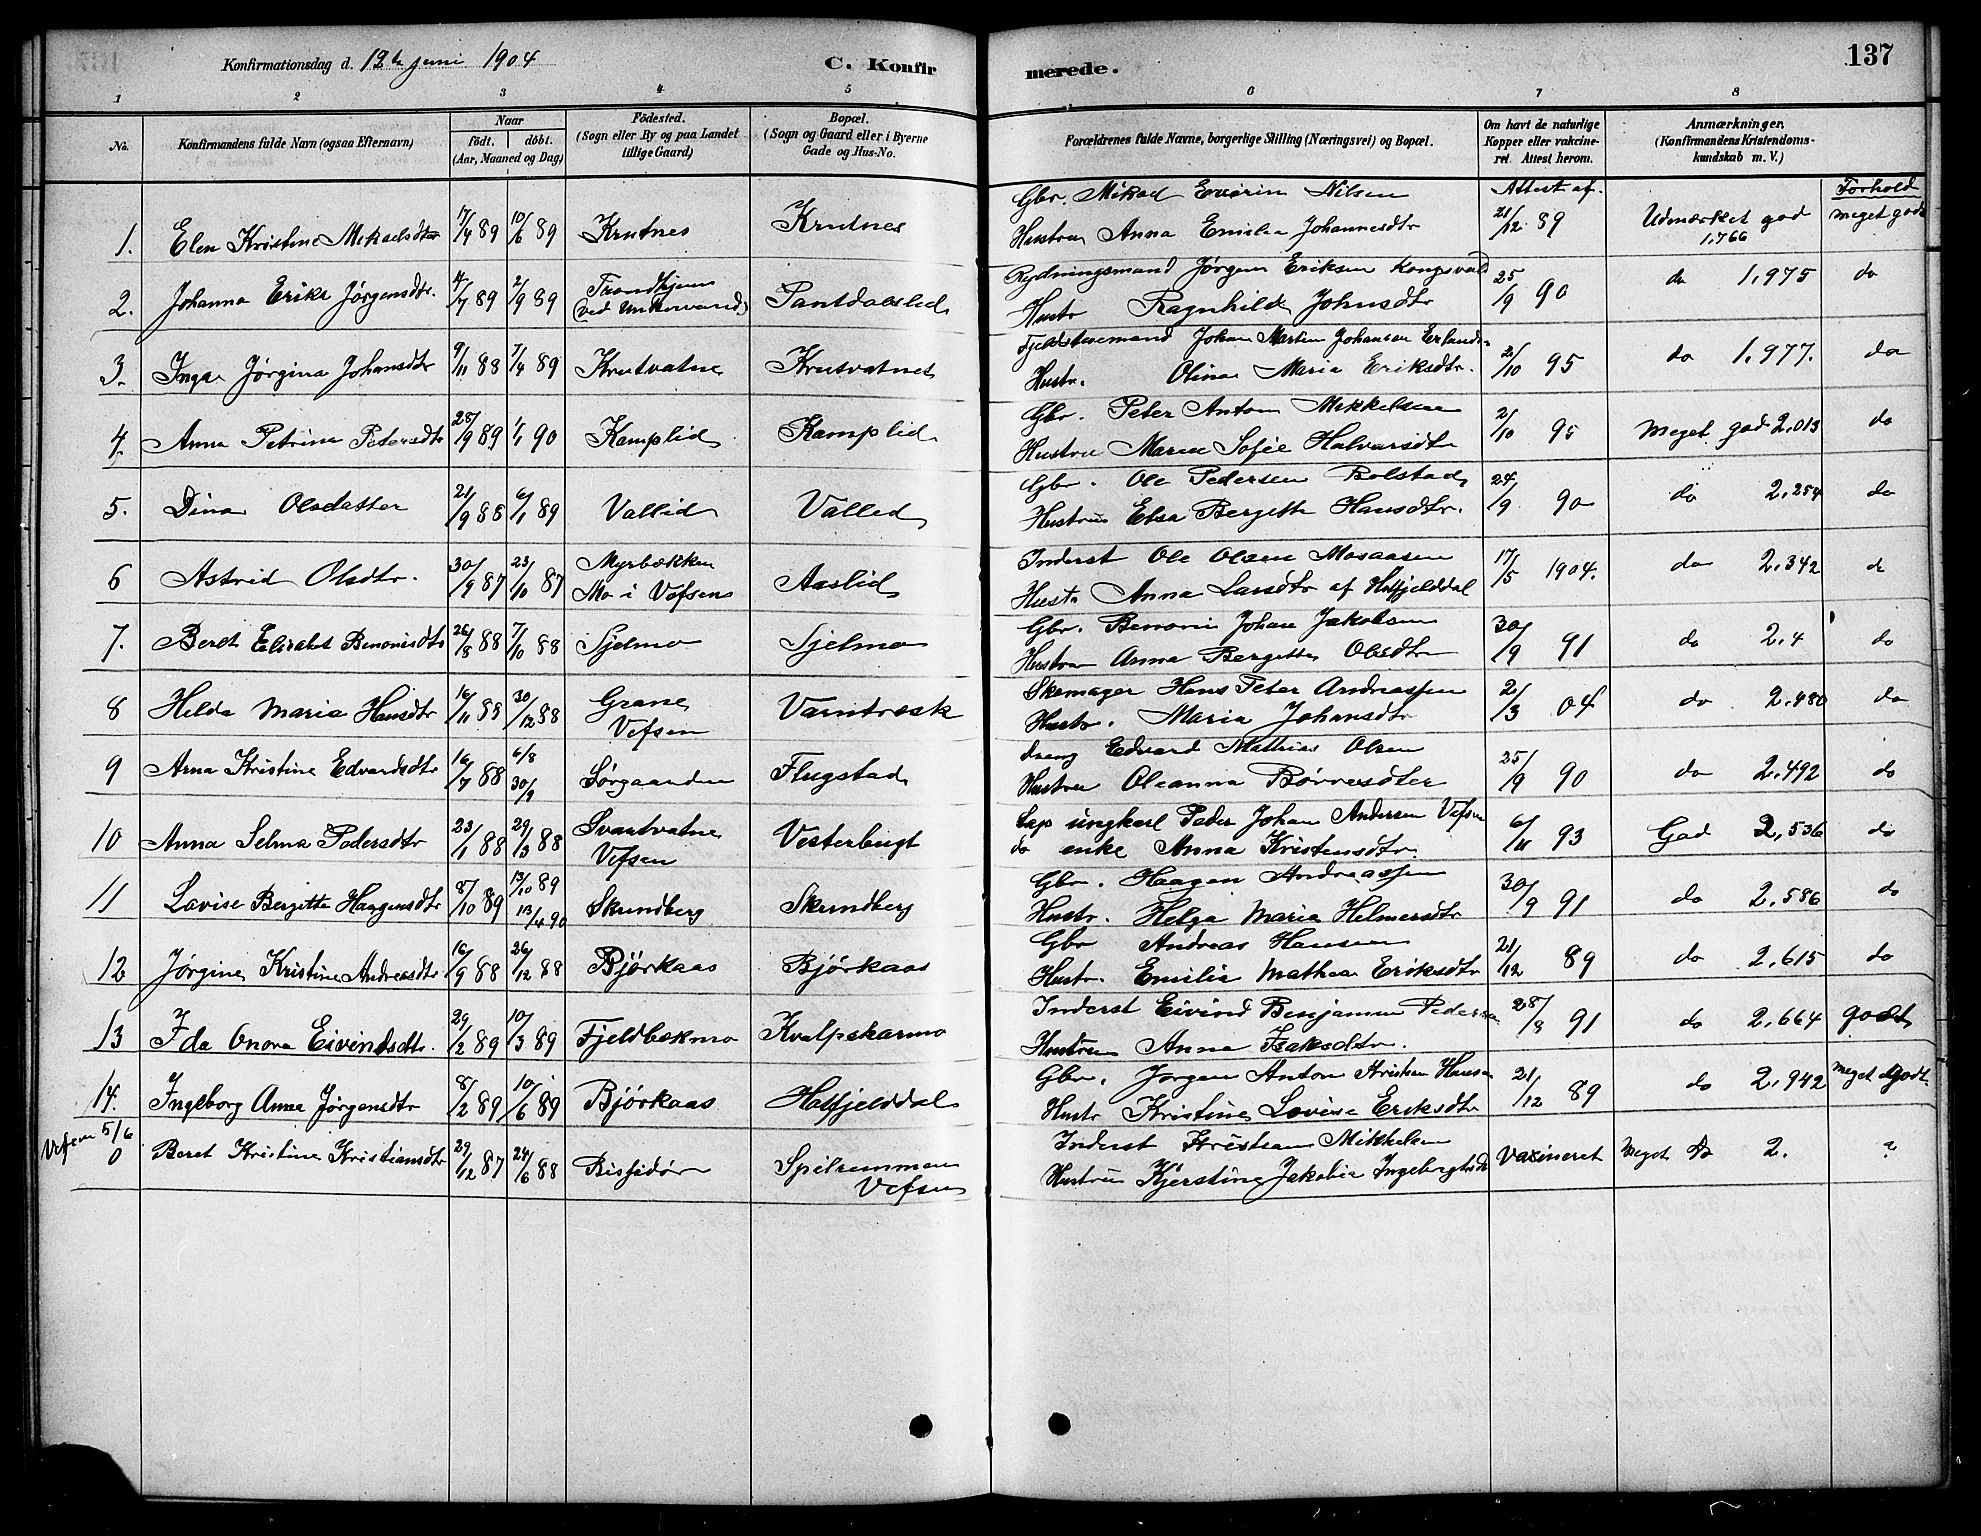 Konfirmationsdag d. 12te juni 1904
C. Konfirmerede.
137
1 2 3 4 5 6 7 8
No.
Konfirmandens fulde Navn (ogsaa Efternavn)
Naar
födt. döbt.
(Aar, Maaned og Dag)
Födested.
(Sogn eller By og paa Landet
tillige Gaard)
Bopæl.
(Sogn og Gaard eller i Byerne
Gade og Hus-No.
Forældrenes fulde Navne, borgerlige Stilling (Næringsvei) og Bopæl.
Om havt de naturlige
Kopper eller vakcine-
ret. Attest herom.
Anmærkninger.
(Konfirmandens Kristendoms-
kundskab m. V.)
Attest af.
Forhold
1. Elen Kristine Mikaelsdtr 17/4 89 10/6 89 Krutnes Krutnes
Gbr. Mikael Nilsen
Hustru Anna Emilie Johannesdtr 21/12 89 Udmærket god 1.766 meget godt
2. Johanna Erika Jörgensdtr. 4/7 89 2/9 89 Trondhjem
(ved Unkervand) Pantdalslid
Rydningsmand Jörgen Eriksen Kongsvold
Hustr Ragnhild Johnsdtr 25/9 90 do 1.975 do
3. Inga Jörgina Johansdtr 9/11 88 7/4 89 Krutvatne Krutvatnet
Fjeldstuemand Johan Martin Johansen
Hustr. Olina Maria Eriksdtr. 2/10 95 do 1.977. do
4. Anna Petrine Petersdtr 28/9 89 1/1 90 Kamplid Kamplid
Gbr. Peter Anton Mikkelsen
Hustru Maren Sofie Halvarsdtr 2/10 95 Meget god 2.013 do
5. Dina Olsdatter 21/9 88 6/1 89 Vallid Vallid
Gbr. Ole Pedersen Bolstad
Hustru Elsa Bergitte Hansdtr. 24/9 90 do 2.254 do
6 Astrid Olsdtr. 30/9 87 23/10 87 Myrbækken
Mo i Vefsen Aaslid
Inderst Ole Olsen Mosaasen
Hustr Anna Larsdtr af Hatfjelddal 17/5 1904. do 2.342 do
7. Beret Elisabet Benonisdtr 26/8 88 7/10 88 Sjelmo Sjelmo
Gbr. Benoni Johan Jakobsen
Hustru Anna Bergitte Olsdtr 30/9 91 do 2.4 do
8 Helda Maria Hansdtr 16/11 88 30/12 88 Grane
Vefsen Varntræsk
Skomager Hans Peter Andreassen
Hustr. Maria Johansdtr 2/3 04 do 2.480 do
9 Arna Kristine Edvardsdtr 16/7 88 6/8
30/9 Sörgaarden Flugstad
Edvard Mathias Olsen
Hustru Oleanna Börresdter 25/9 90 do 2.492 do
10 Anna Selma Pedersdtr 23/1 88 29/3 88 Svartvatne
Vefsen Vesterbugt
Lap ungkarl Peder Johan Andersen Vefsen
do enke Anna Kristensdtr. 6/11 93 God 2,536 do
11 Lovise Bergitte Haagensdtr 8/10 89 13/10 89
13/4 90 Skundberg Skundberg
Gbr. Haagen Andreassen
Hustr. Helga Maria Helmersdtr 30/9 91 do 2.586 do
12 Jörgine Kristine Andreasdtr 16/9 88 26/12 88 Björkaas Björkaas
Gbr Andreas Hansen
Hustr. Emilie Mathea Eriksdtr 21/12 89 do 2.615 do
13 Ida Onora Eivindsdtr. 29/2 89 10/3 89 Fjeldbækmo Kvalpskarmo
Inderst Eivind Benjamin Pedersen
Hustru Anna Isaksdtr. 28/8 91 do 2.664 godt
14. Ingeborg Anna Jörgensdtr 8/2 89 10/6 89 Björkaas Hatfjelddal
Gbr. Jörgen Anton Kristian Hansen
Hustr Kristine Lovise Eriksdtr 21/12 89 do 2.942 meget godt
Vefsen 5/6
0 Beret Kristine Kristiansdtr 29/12 87 24/6 88 Spilremmen
Vefsen
Inderst Kristian Mikkelsen
Hustru Kjerstine Jakobie Ingebrigtsd Vaxineret Meget 2. ?